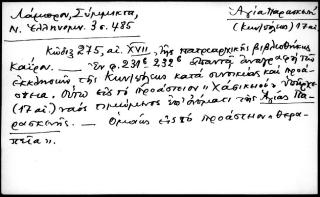 Λάμπρου, Σύμμικτα,
Ν. Ἑλληνομν. 3 σ. 485
Ἁγία Παρασκευή
(Κων/πόλεως) 17 αἰ.
Κώδιξ 275, αἰ. XVII, τῆς πατριαρχικῆς βιβλιοθήκης
Καΐρου. — Ἐν φ. 231β 232β ἀναγραφὴ τῶν
ἐκκλησιῶν τῆς Κων/πόλεως κατὰ συνοικίας καὶ προά-
στεια. Οὕτω εἰς τὸ προάστειον "Χάσκιοϊ"
(17 αἰ) ναὸς τιμώμενος ἐπ' ὀνόματι τῆς Ἁγίας Πα-
ρασκευῆς. — Ὁμοίως εἰς τὸ προάστειον "Θερα-
πεῖα".